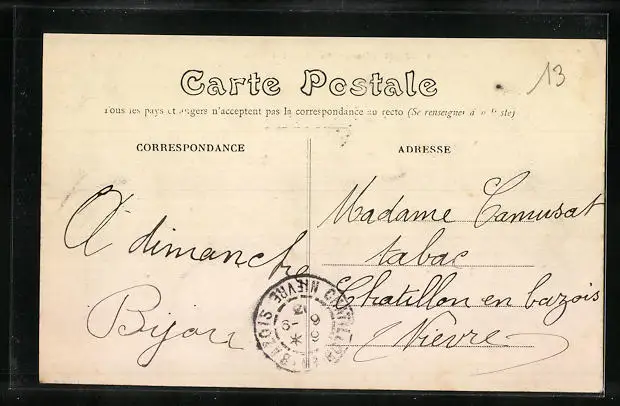 13
Carte Postale
Tous les pays étrangers n'acceptent pas la correspondance au recto (Se renseigner à la Poste)
CORRESPONDANCE
ADRESSE
À dimanche
Bijou
Madame Camusat
tabac
Chatillon en bazois
Nièvre
NIEVRE